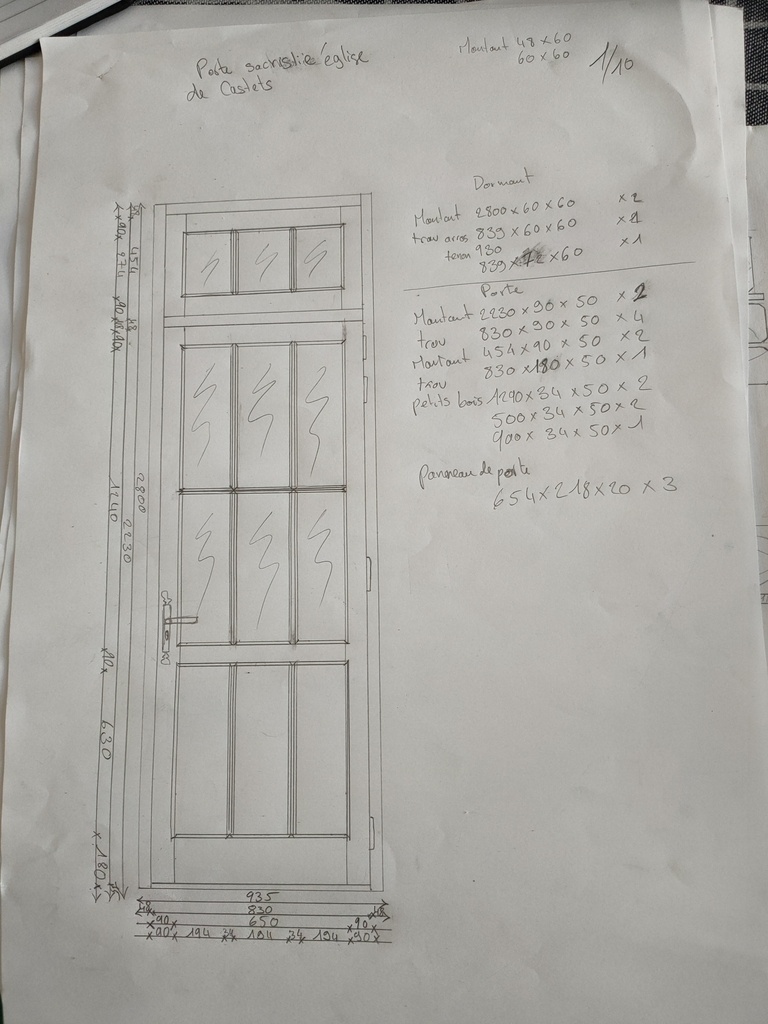 Porte sacristie église
de Castets
Montant 48 x 60
60 x 60
1/10
Dormant
Montant 2800 x 60 x 60 x 2
trav 839 x 60 x 60
tenon 930
839 x 60 x 1
Porte
Montant 2230 x 90 x 50 x 2
trav 830 x 90 x 50 x 4
Montant 454 x 90 x 50 x 2
trav 830 x 180 x 50 x 1
petits bois 1290 x 34 x 50 x 2
500 x 34 x 50 x 2
900 x 34 x 50 x 1
panneau de porte
654 x 218 x 20 x 3
454
2800
2230
1240
630
180
935
830
90 650 90
90 194 34 194 34 194 90